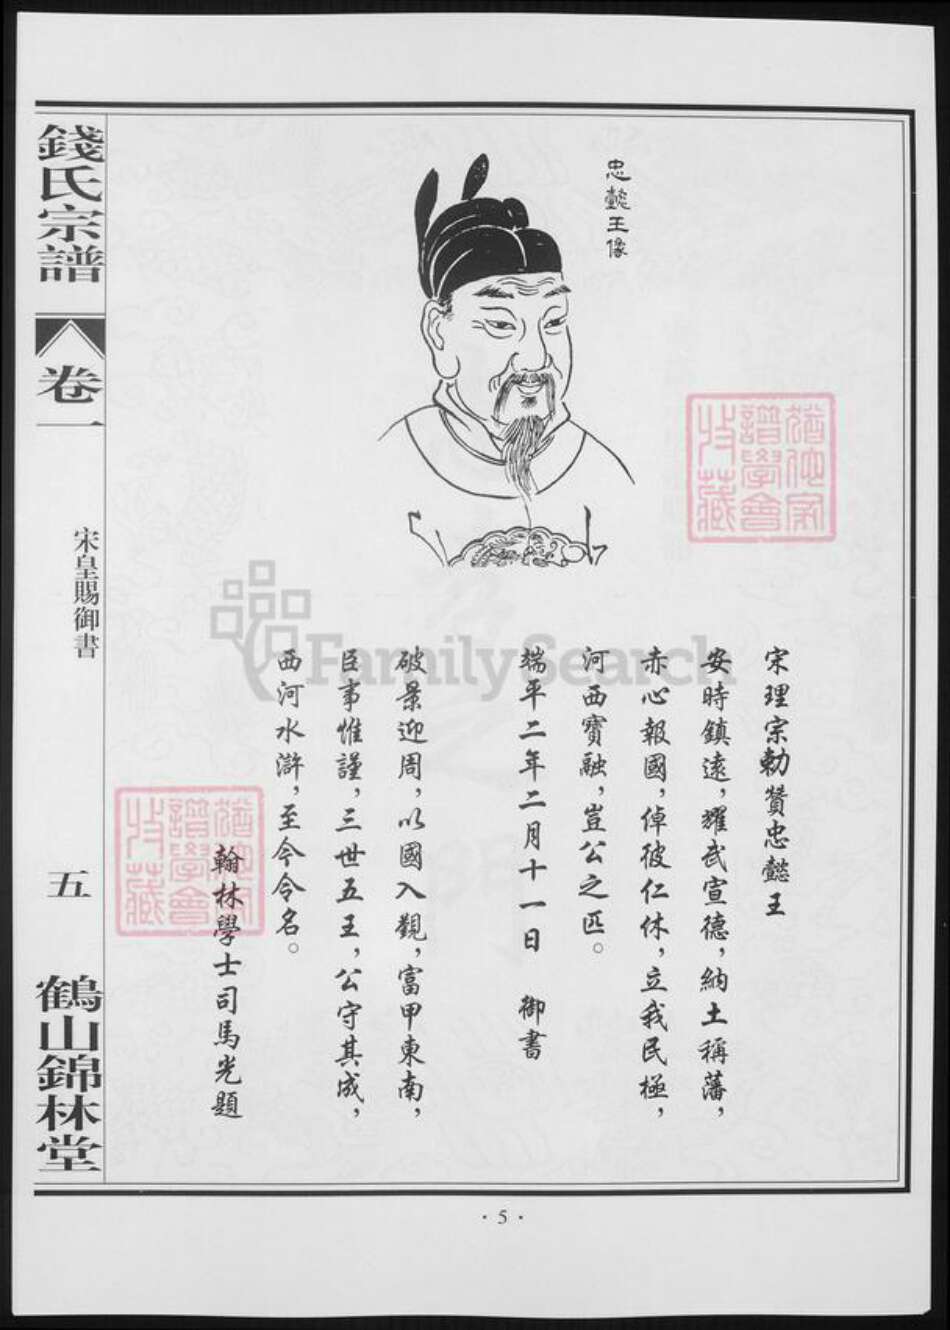 忠懿王像
宋理宗勅贊忠懿王
安時鎮遠，耀武宣德，納土稱藩，
赤心報國，倬彼仁休，立我民極，
河西寶融，豈公之匹。
端平二年二月十一日 御書
破景迎周，以國入覲，富甲東南，
臣事惟謹，三世五王，公守其成，
西河水滸，至今令名。
翰林學士司馬光題
錢氏宗譜
卷一
宋皇賜御書
五
鶴山錦林堂
·5·
FamilySearch
譜學會
收藏
譜學會
收藏